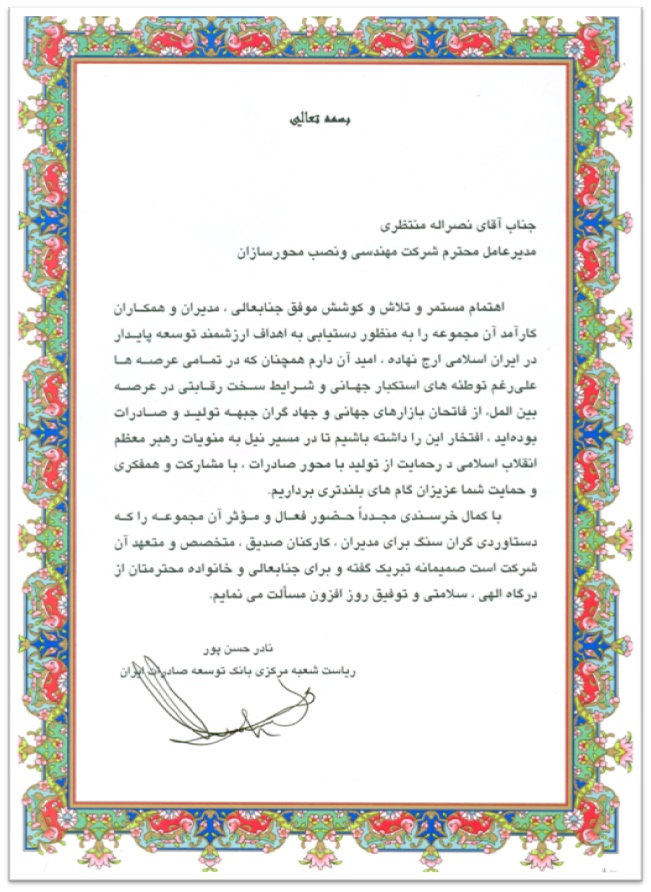 بسمه تعالی
جناب آقای نصراله منتظری
مدیرعامل محترم شرکت مهندسی ونصب محورسازان
اهتمام مستمر و تلاش و کوشش موفق جنابعالی ، مدیران و همکاران
کارآمد آن مجموعه را به منظور دستیابی به اهداف ارزشمند توسعه پایدار
در ایران اسلامی ارج نهاده ، امید آن دارم همچنان که در تمامی عرصه ها
علی‌رغم توطئه های استکبار جهانی و شرایط سخت رقابتی در عرصه
بین الملل، از فاتحان بازارهای جهانی و جهاد گران جبهه تولید و صادرات
بوده‌اید ، افتخار این را داشته باشیم تا در مسیر نیل به منویات رهبر معظم
انقلاب اسلامی د رحمایت از تولید با محور صادرات ، با مشارکت و همفکری
و حمایت شما عزیزان گام های بلندتری برداریم.
با کمال خرسندی مجدداً حضور فعال و مؤثر آن مجموعه را که
دستاوردی گران سنگ برای مدیران ، کارکنان صدیق ، متخصص و متعهد آن
شرکت است صمیمانه تبریک گفته و برای جنابعالی و خانواده محترمتان از
درگاه الهی ، سلامتی و توفیق روز افزون مسألت می نمایم.
نادر حسن پور
ریاست شعبه مرکزی بانک توسعه صادرات ایران